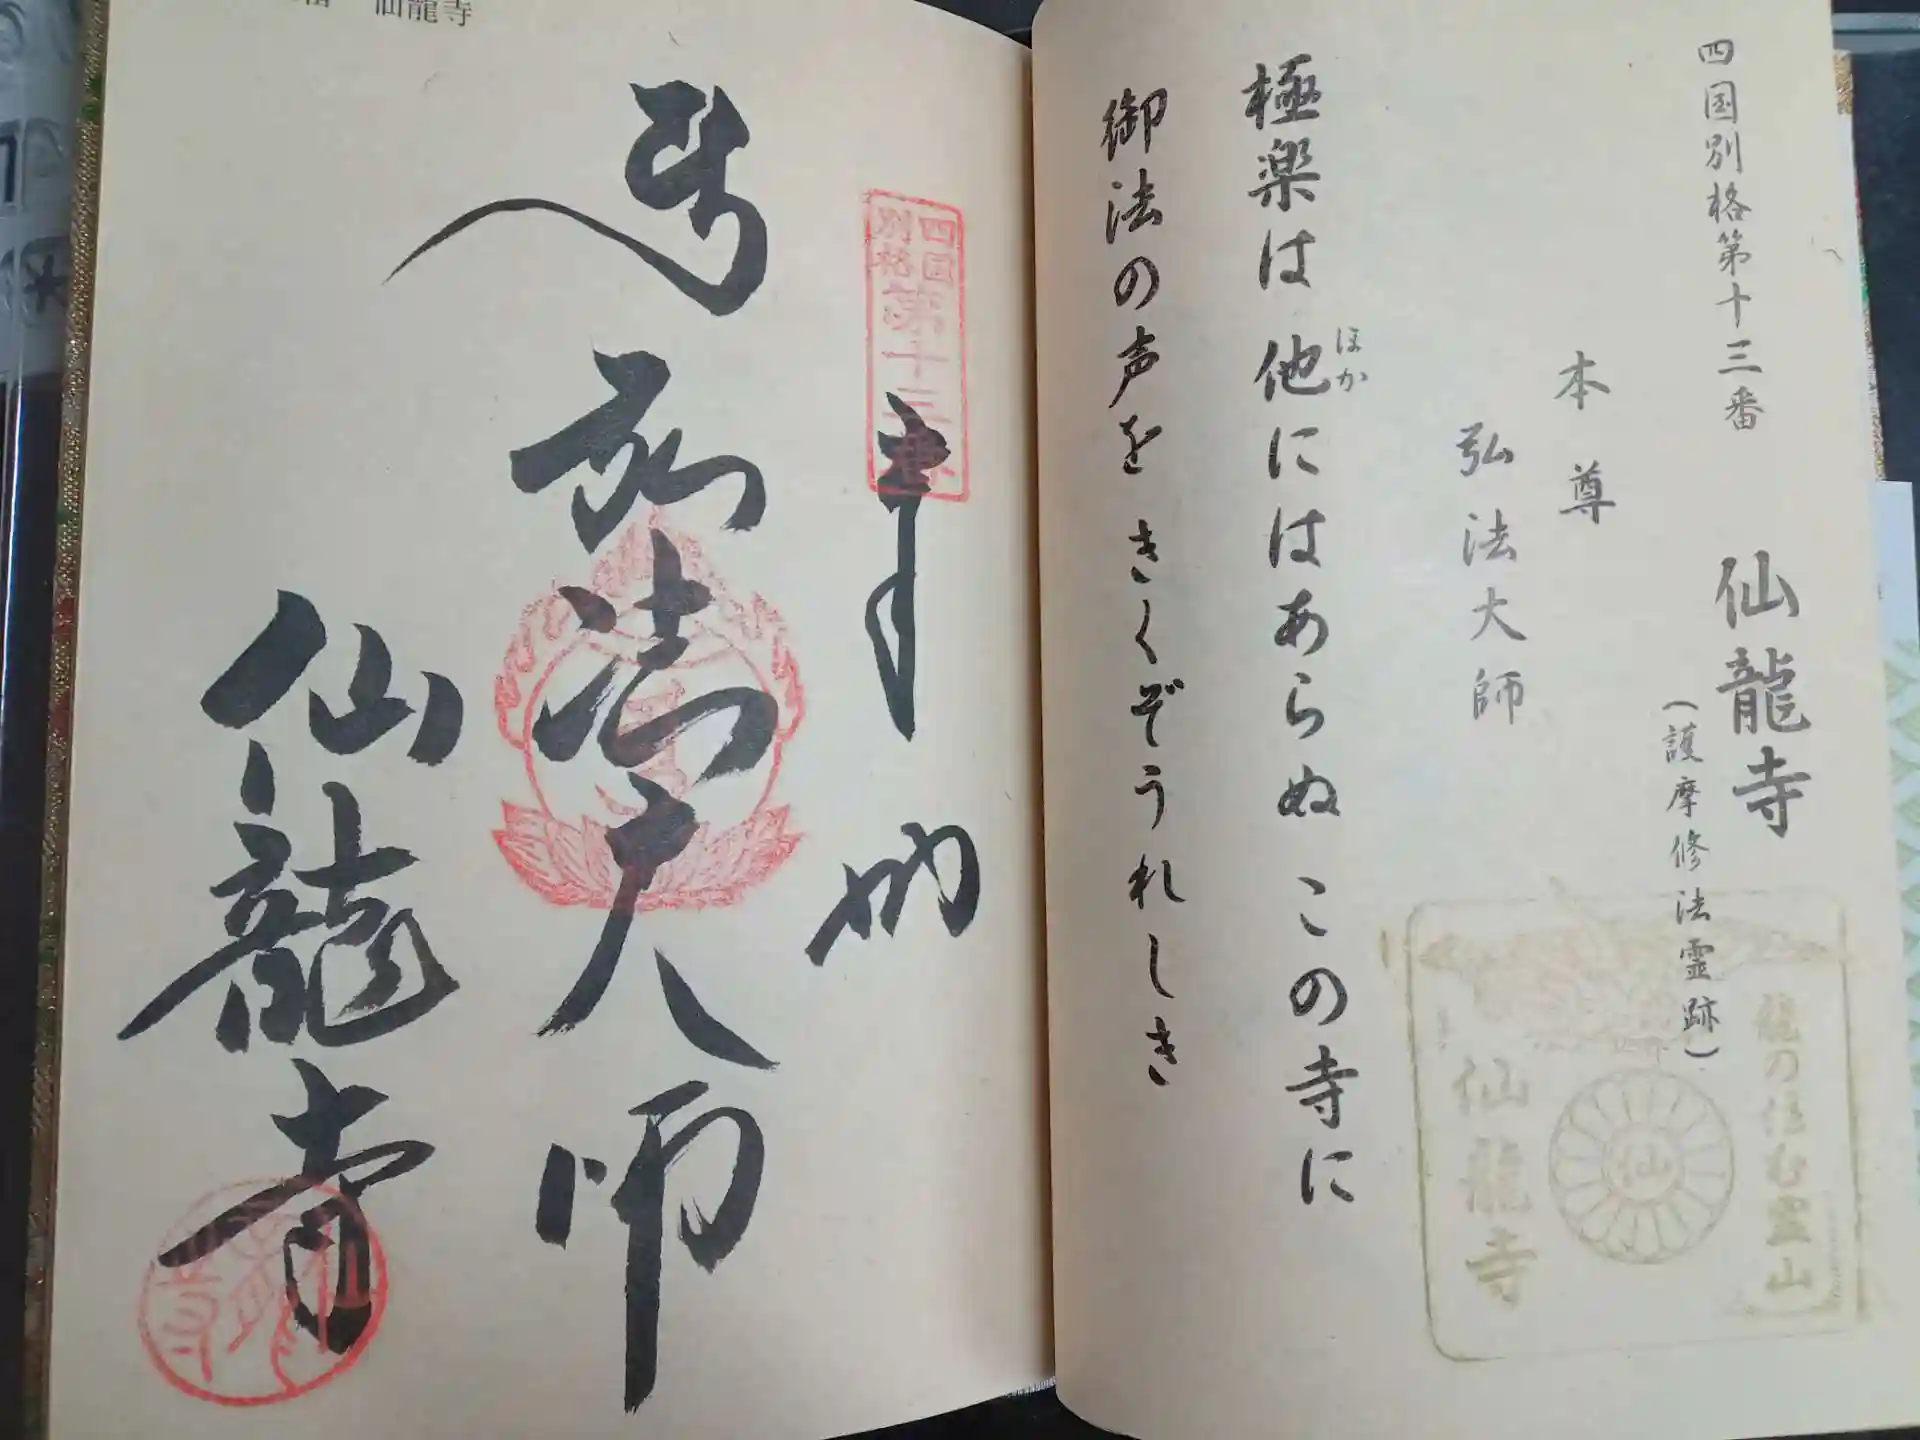 四国別格第十三番
仙龍寺
(護摩修法霊跡)
本尊
弘法大師
極楽は他にはあらぬこの寺に
ほか
御法の声をきくぞうれしき
龍の住む霊山
仙
仙龍寺
仙龍寺
四国
別格
第十三番
奉
弘法大師
仙龍寺